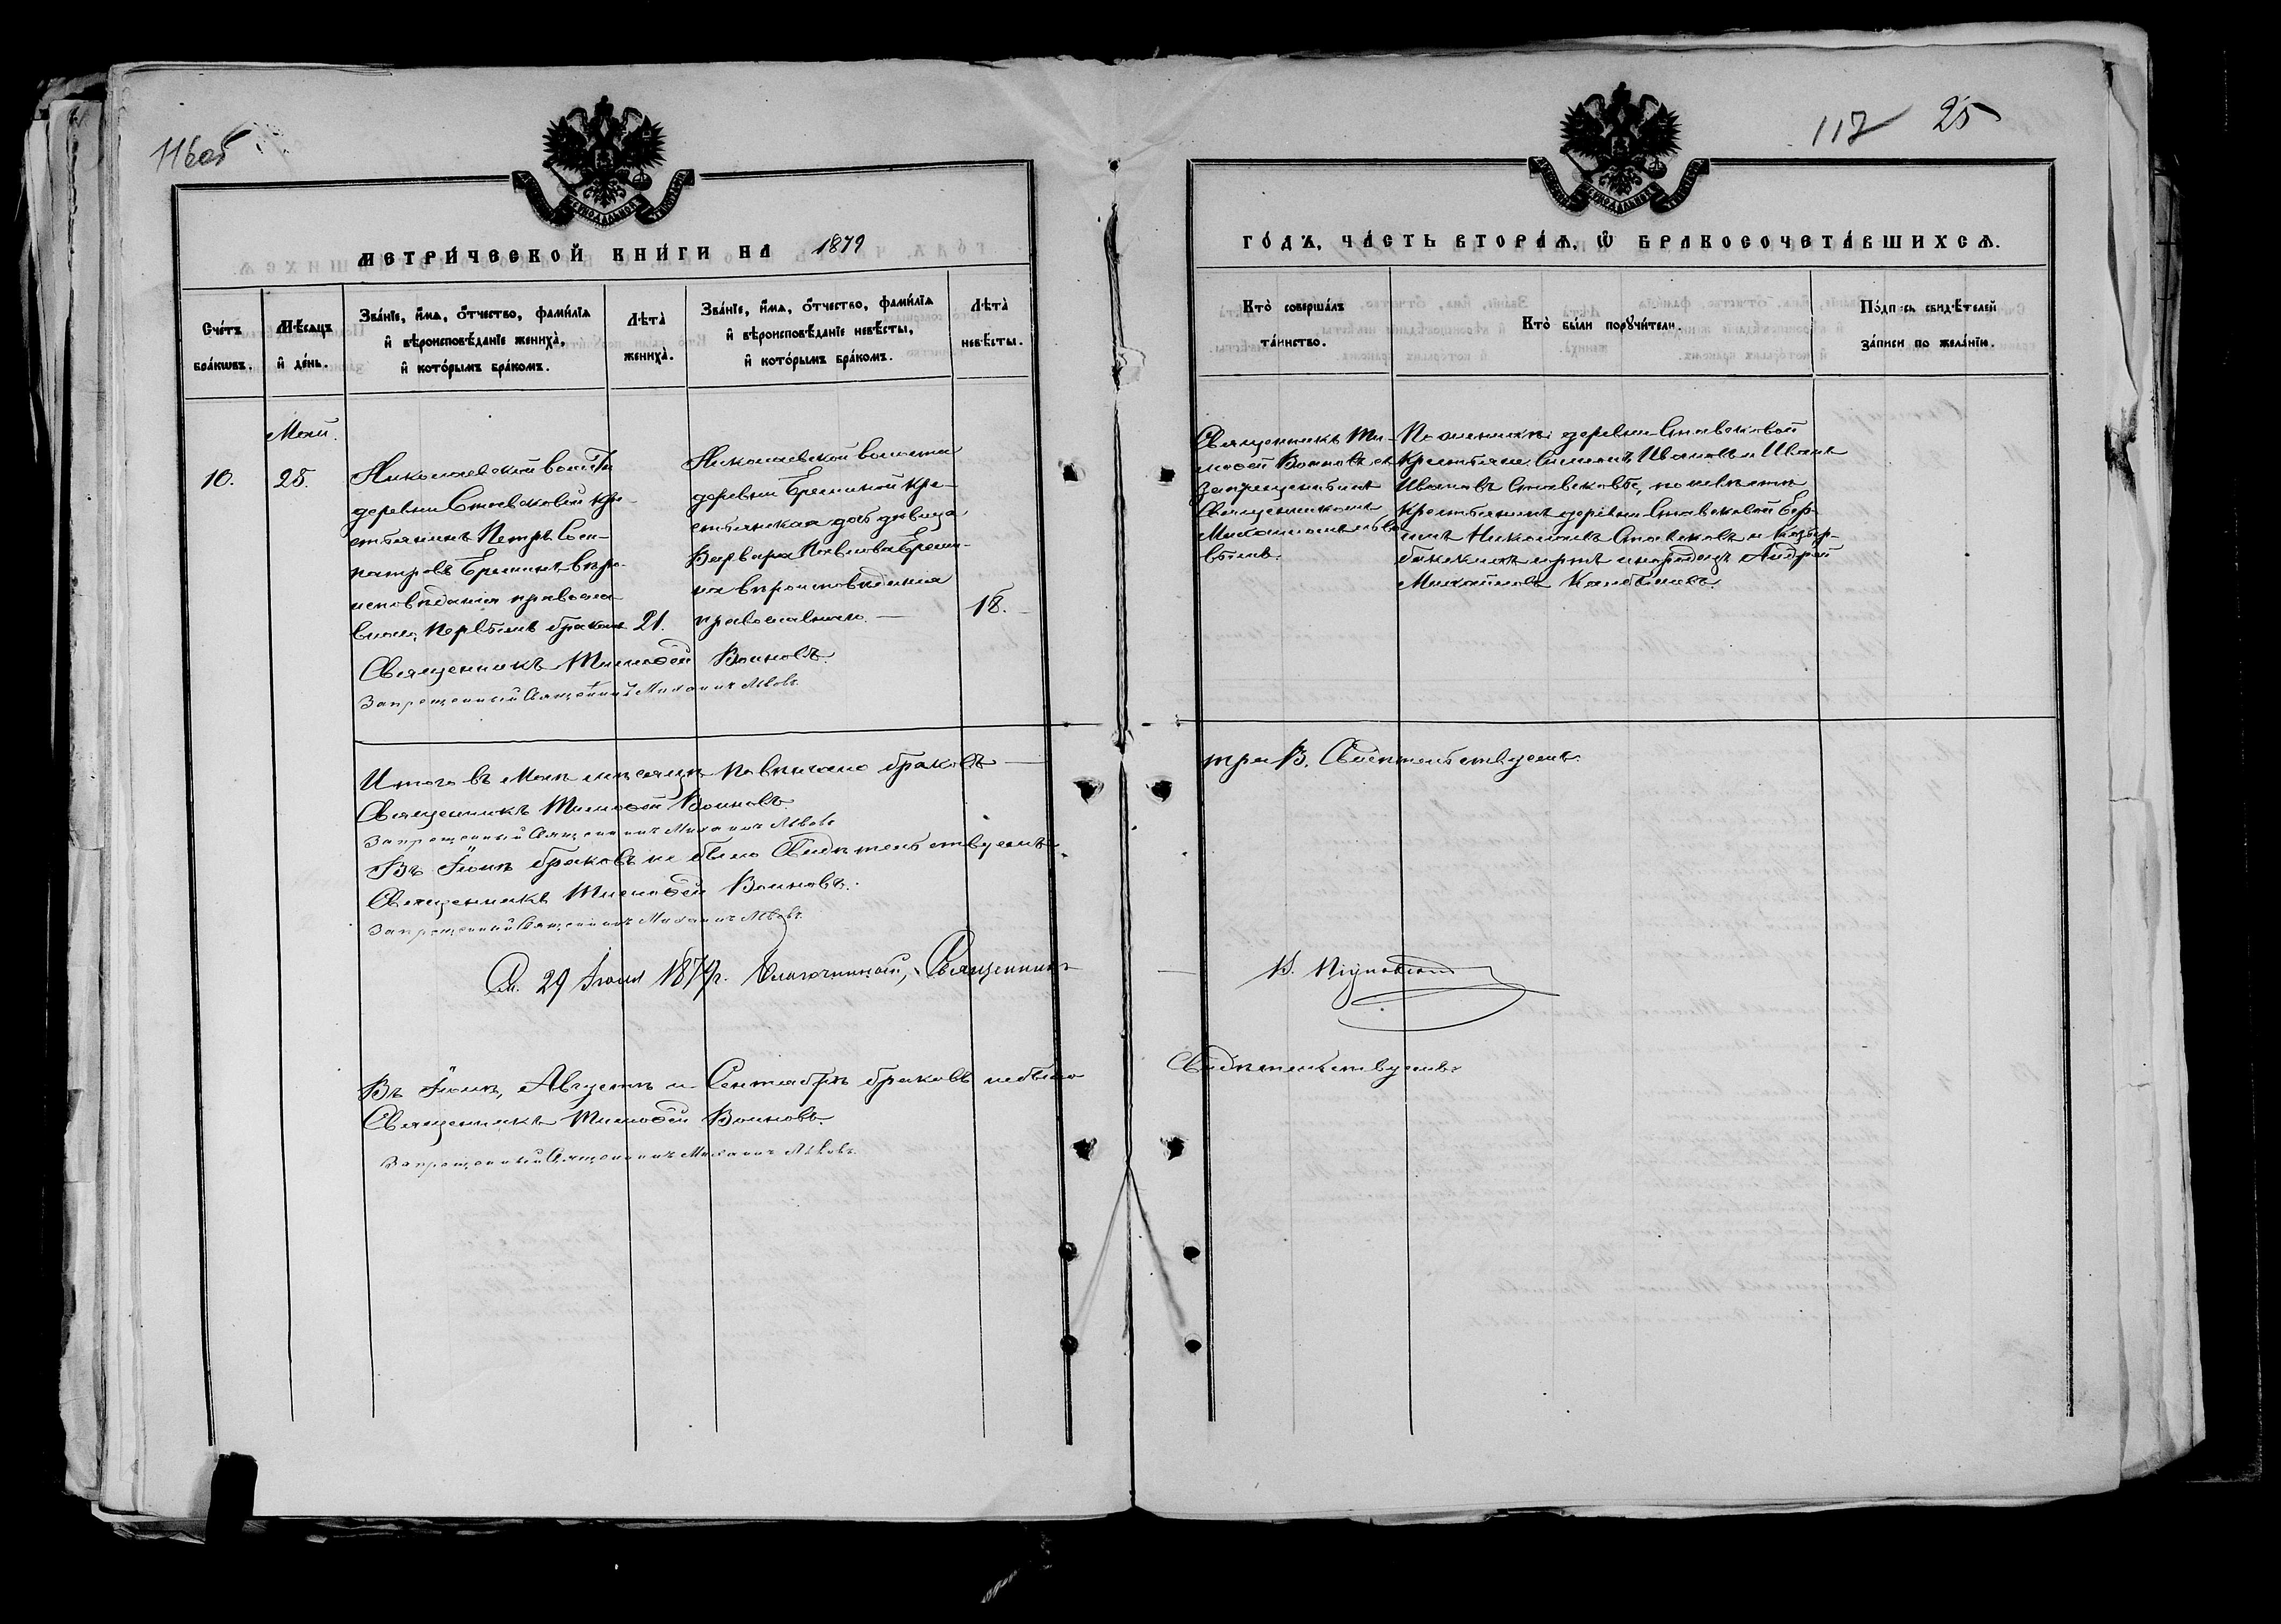 116об
117 25
МЕТРИ́ЧЕСКОЙ КНИ́ГИ НА 1879
ГО́ДЪ, ЧА́СТЬ ВТОРА́Ѧ, Ѿ БРАКОСОЧЕТА́ВШИХСѦ.
Сче́тъ бра́кѡвъ.
Мѣ́сѧцъ и҆ де́нь.
Зва́нїе, и҆́мѧ, ѻ҆́тчество, фами́лїѧ
и҆ вѣроисповѣ́данїе жениха̀,
и҆ кото́рымъ бра́комъ.
Лѣта̀ жениха̀.
Зва́нїе, и҆́мѧ, ѻ҆́тчество, фами́лїѧ
и҆ вѣроисповѣ́данїе невѣ́сты,
и҆ кото́рымъ бра́комъ.
Лѣта̀ невѣ́сты.
Кто̀ соверша́лъ
та́инство.
Кто̀ бы́ли порꙋчи́тели.
По́дпись свидѣ́телей
за́писи по жела́нїю.
Май.
10.
25.
Николаевской волости
деревни Ставсковой кре-
стьянинъ Петръ
Ереминъ вѣро-
исповѣданія правосла-
внаго, первымъ бракомъ
21.
Николаевской волости
деревни Ереминой кре-
стьянская дочь девица
Варвара Павлова Ереми-
на вѣроисповѣданія
православнаго.
18.
Священникъ Ти-
мофей Воиновъ съ
запрещеннымъ
Священникомъ
Михаиломъ Льво-
вымъ.
По женихѣ: деревни Ставсковой
крестьяне Симеонъ Ивановъ и Иванъ
Ивановъ Ставсковы, по невѣстѣ
крестьянинъ деревни Ставсковой
Николаевъ Ставсковъ и
инородецъ Андрей
Михайловъ
Священникъ Тимофей Воиновъ.
Запрещенный Священникъ Михаилъ Львовъ.
Итого въ Маѣ мѣсяцѣ повѣнчано браковъ —
три 3. Свидѣтельствуемъ.
Священникъ Тимофей Воиновъ.
Запрещенный Священникъ Михаилъ Львовъ
Въ Іюнѣ браковъ не было Свидѣтельствуемъ
Священникъ Тимофей Воиновъ.
Запрещенный Священникъ Михаилъ Львовъ.
29 Іюня 1879 г. Благочинный, Священникъ
Въ Іюлѣ, Августѣ и Сентябрѣ браковъ небыло
Свидѣтельствуемъ.
Священникъ Тимофей Воиновъ.
Запрещенный Священникъ Михаилъ Львовъ.